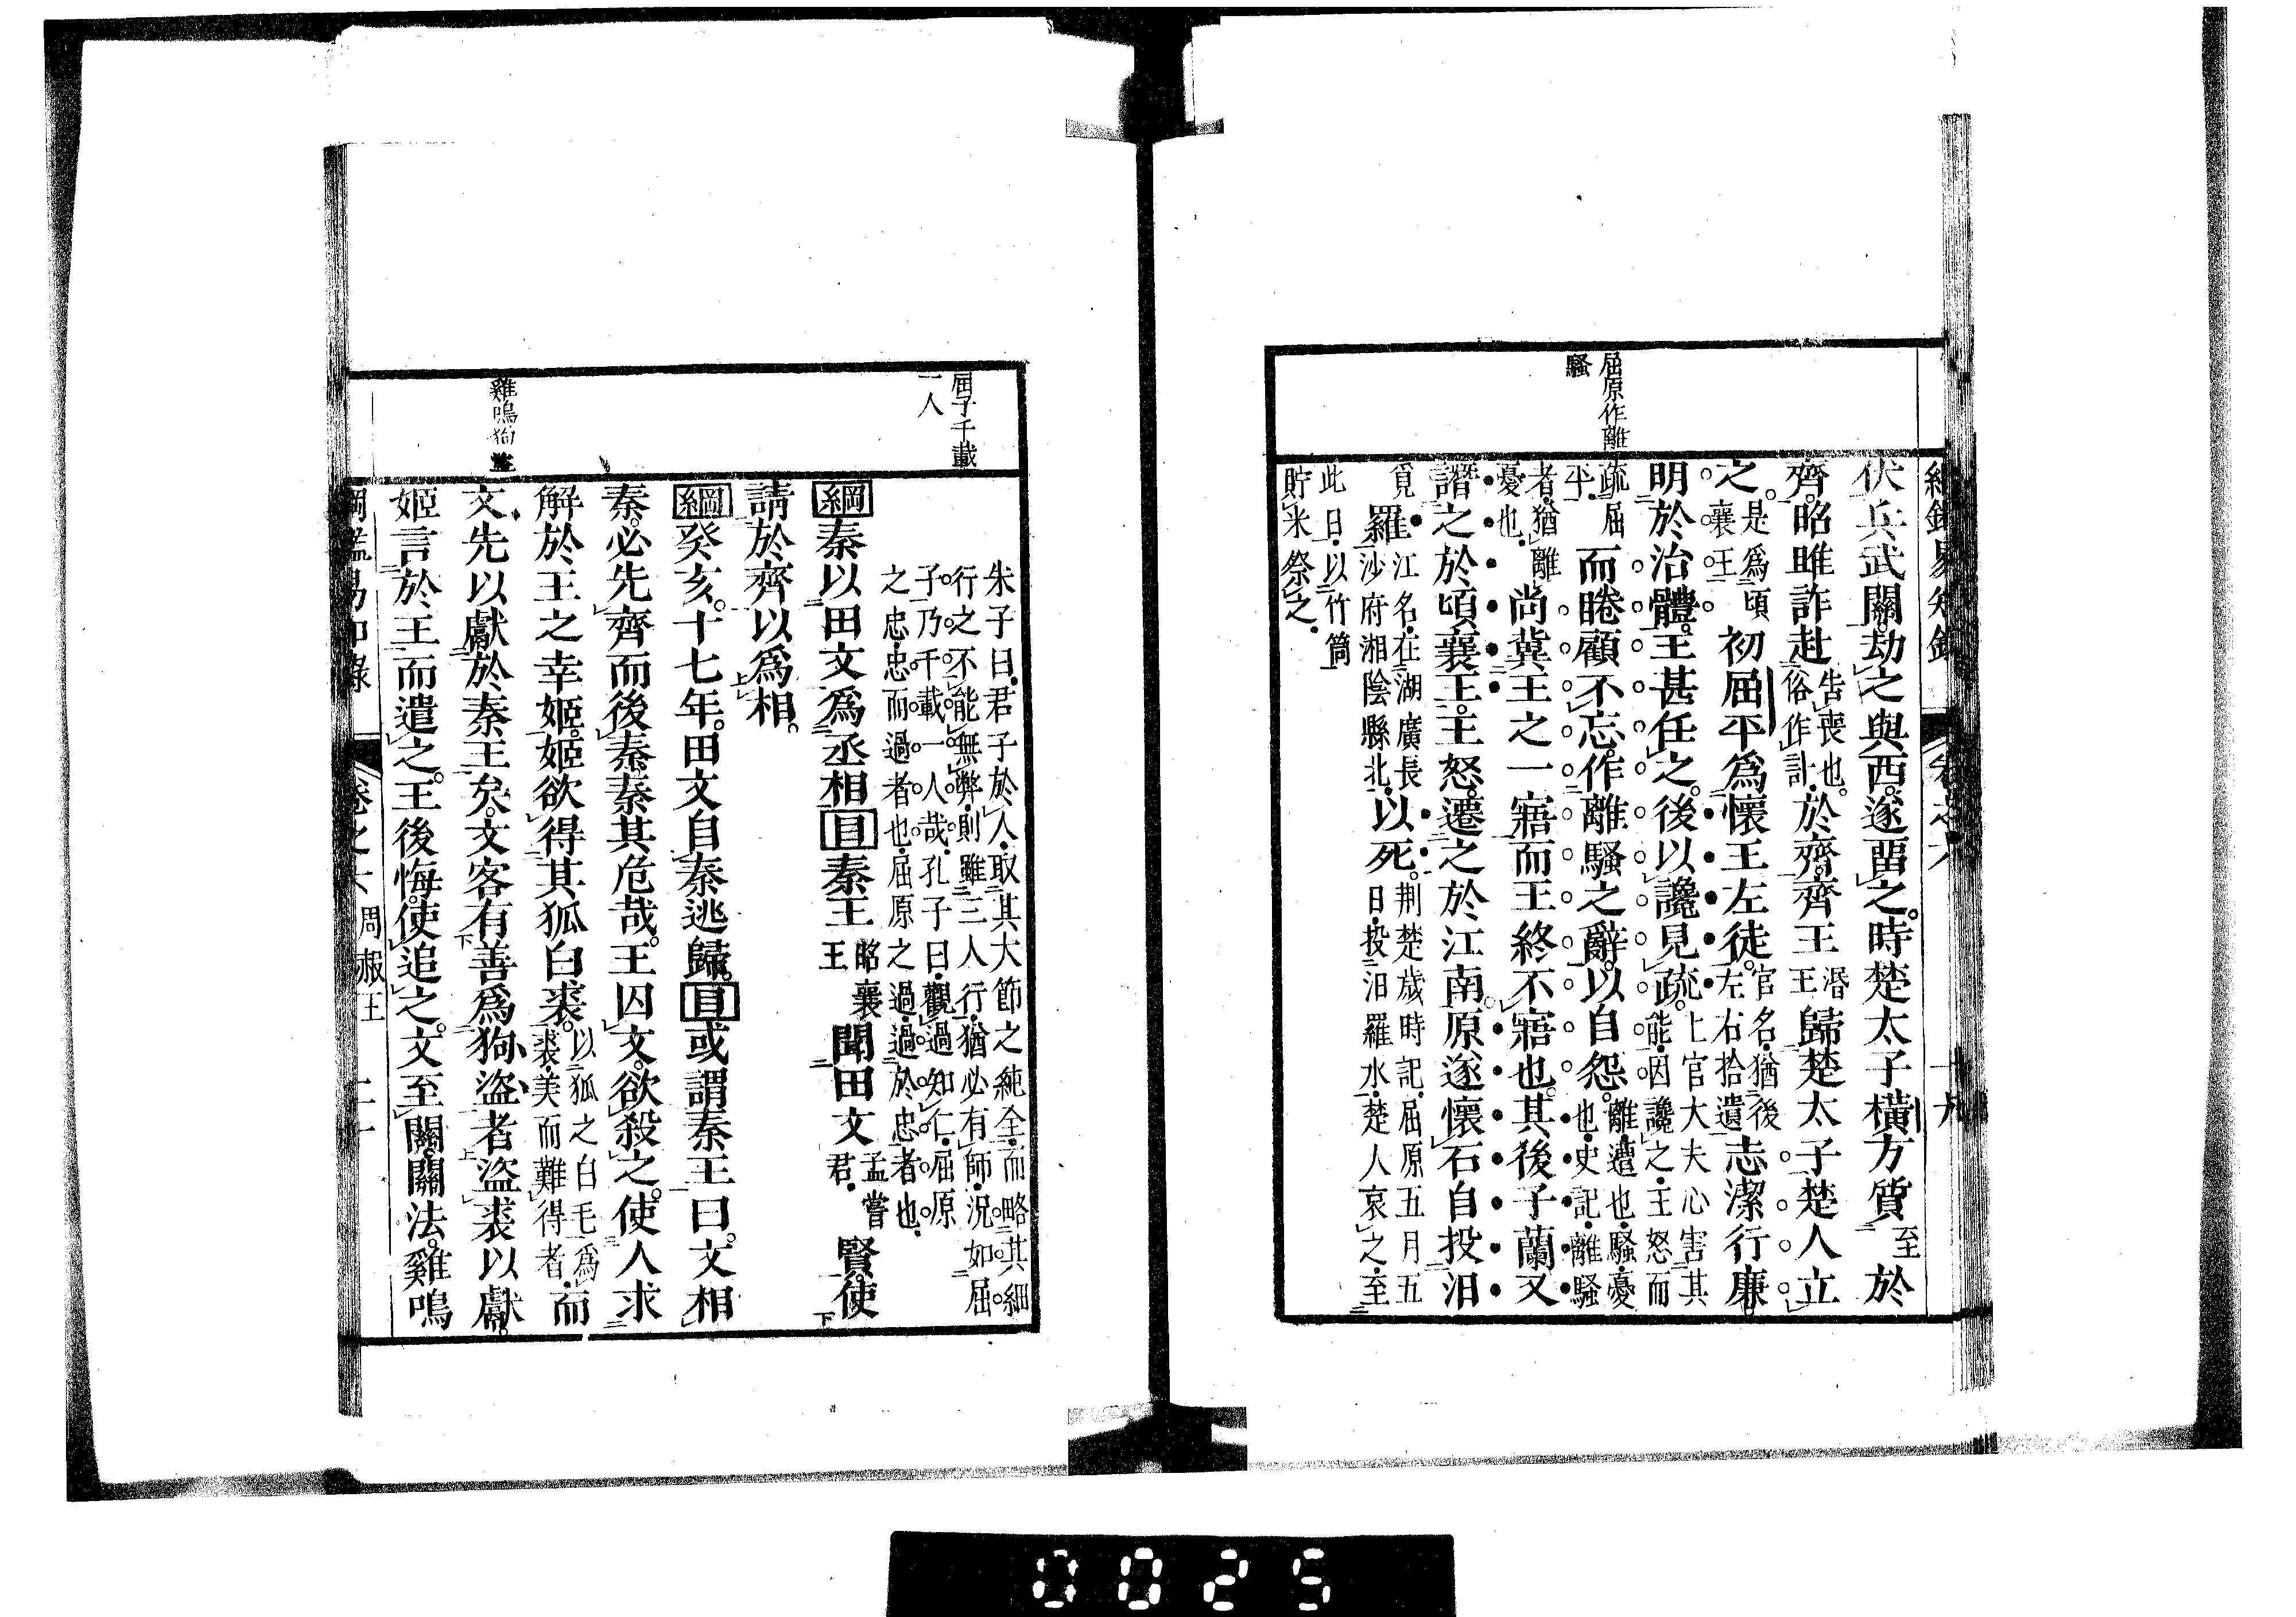 屈原作離
騷
伏兵武關劫之與西遂畱之。時楚太子橫方質至於
齊。昭雎詐赴告喪也。俗作訃。於齊。齊王湣王歸楚太子。楚人立
之。是爲頃襄王初屈平爲懷王左徒。官名。猶後左右拾遺志潔行廉。
明於治體。王甚任之。後以讒見疏。上官大夫心害其能。因讒之。王怒而
疏屈平。而睠顧不忘。作離騷之辭。以自怨。離遭也。騷憂也。史記。離騷
者。猶離憂也。尚冀王之一寤。而王終不寤也。其後子蘭又
譖之於頃襄王。王怒。遷之於江南。原遂懷石自投汨
羅江名。在湖廣長沙府湘陰縣北。以死。荆楚歲時記。屈原五月五日。投汨羅水。楚人哀之。至
此日。以竹筒貯米祭之。
十九
屈子千載
一人
雞鳴狗盜
朱子曰。君子於人。取其大節之純全。而略其細
行之不能無弊。則雖三人行。猶必有師。況如屈
子乃千載一人哉。孔子曰。觀過知仁。屈原
之忠。忠而過者也。屈原之過。過於忠者也。
綱秦以田文爲丞相目秦王昭襄王聞田文孟嘗君。賢。使
請於齊以爲相。
綱癸亥。十七年。田文自秦逃歸。目或謂秦王曰。文相
秦。必先齊而後秦。秦其危哉。王囚文。欲殺之。使人求
解於王之幸姬。姬欲得其狐白裘。以狐之白毛爲裘。美而難得者。而
文先以獻於秦王矣。文客有善爲狗盜者。盜裘以獻。
姬言於王而遣之。王後悔。使追之。文至關。關法。雞鳴
綱鑑易知錄 卷之六 周赧王 二十